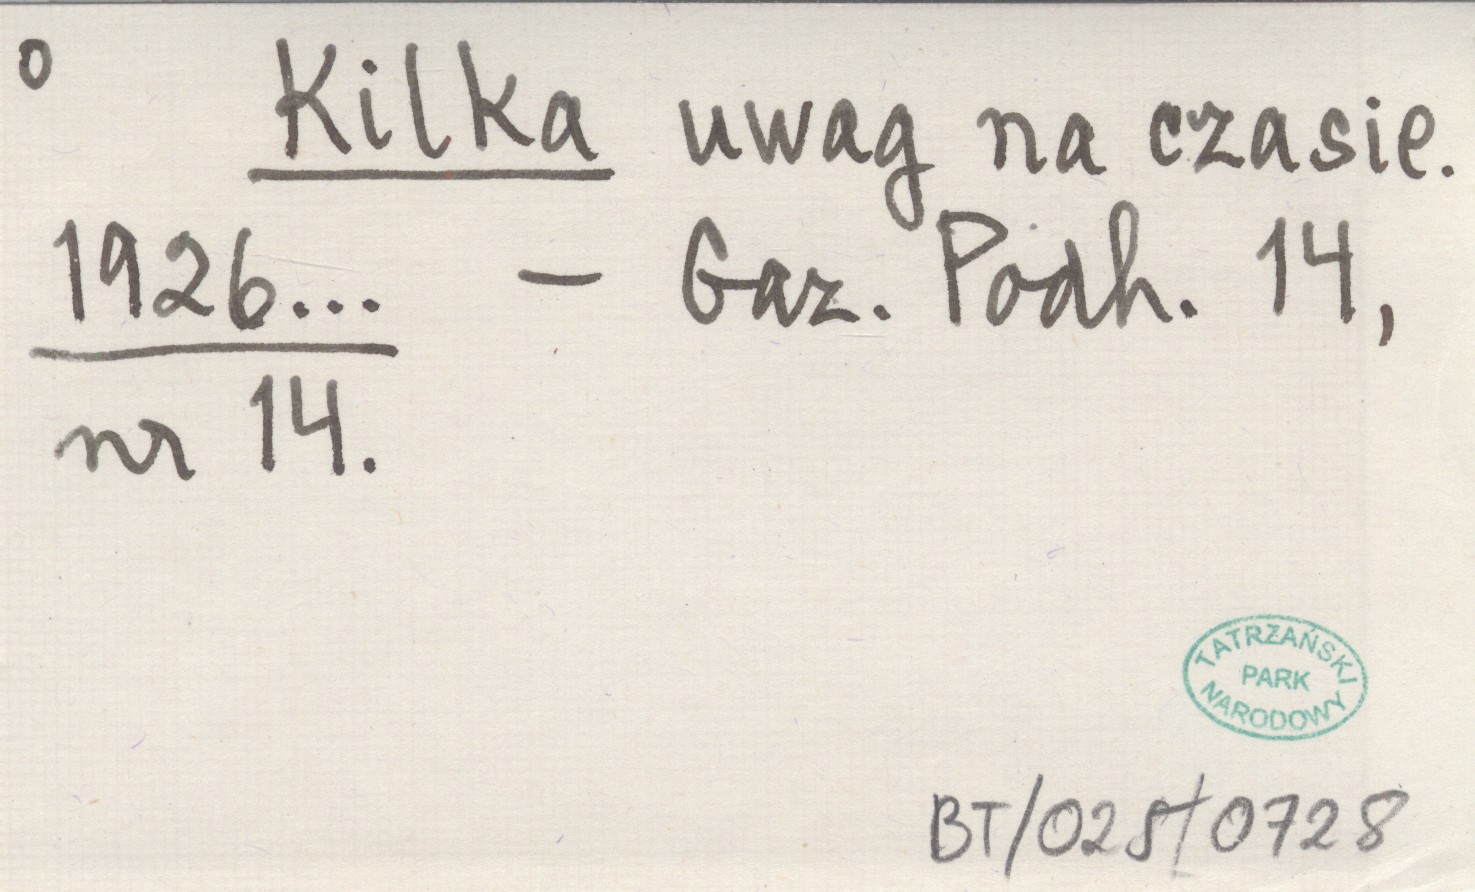 o Kilka uwag na czasie.
1926... – Gaz. Podh. 14,
nr 14.
TATRZAŃSKI
PARK
NARODOWY
BT/025/0728